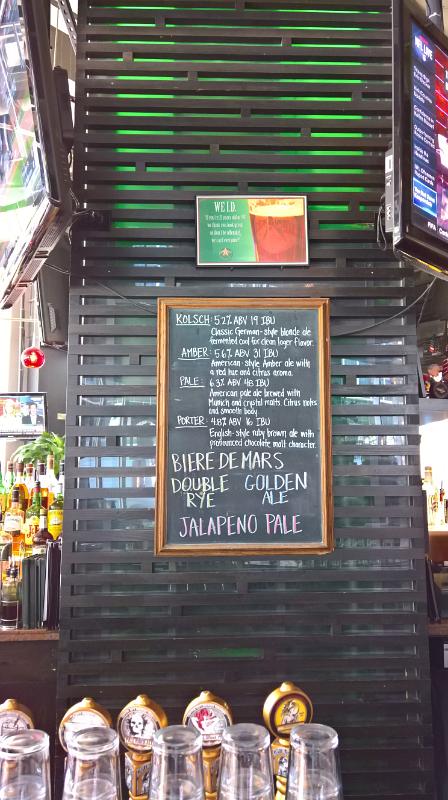 WE I.D.
KOLSCH: 5.2% ABV 19 IBU
Classic German-style blonde ale
fermented cool for clean lager flavor.
AMBER: 5.6% ABV 31 IBU
American-style Amber ale with
a red hue and citrus aroma.
PALE: 6.3% ABV 48 IBU
American pale ale brewed with
Munich and crystal malts. Citrus notes
and smooth body.
PORTER: 4.8% ABV 16 IBU
English-style ruby brown ale with
pronounced chocolate malt character.
BIERE DE MARS
DOUBLE RYE
GOLDEN ALE
JALAPENO PALE